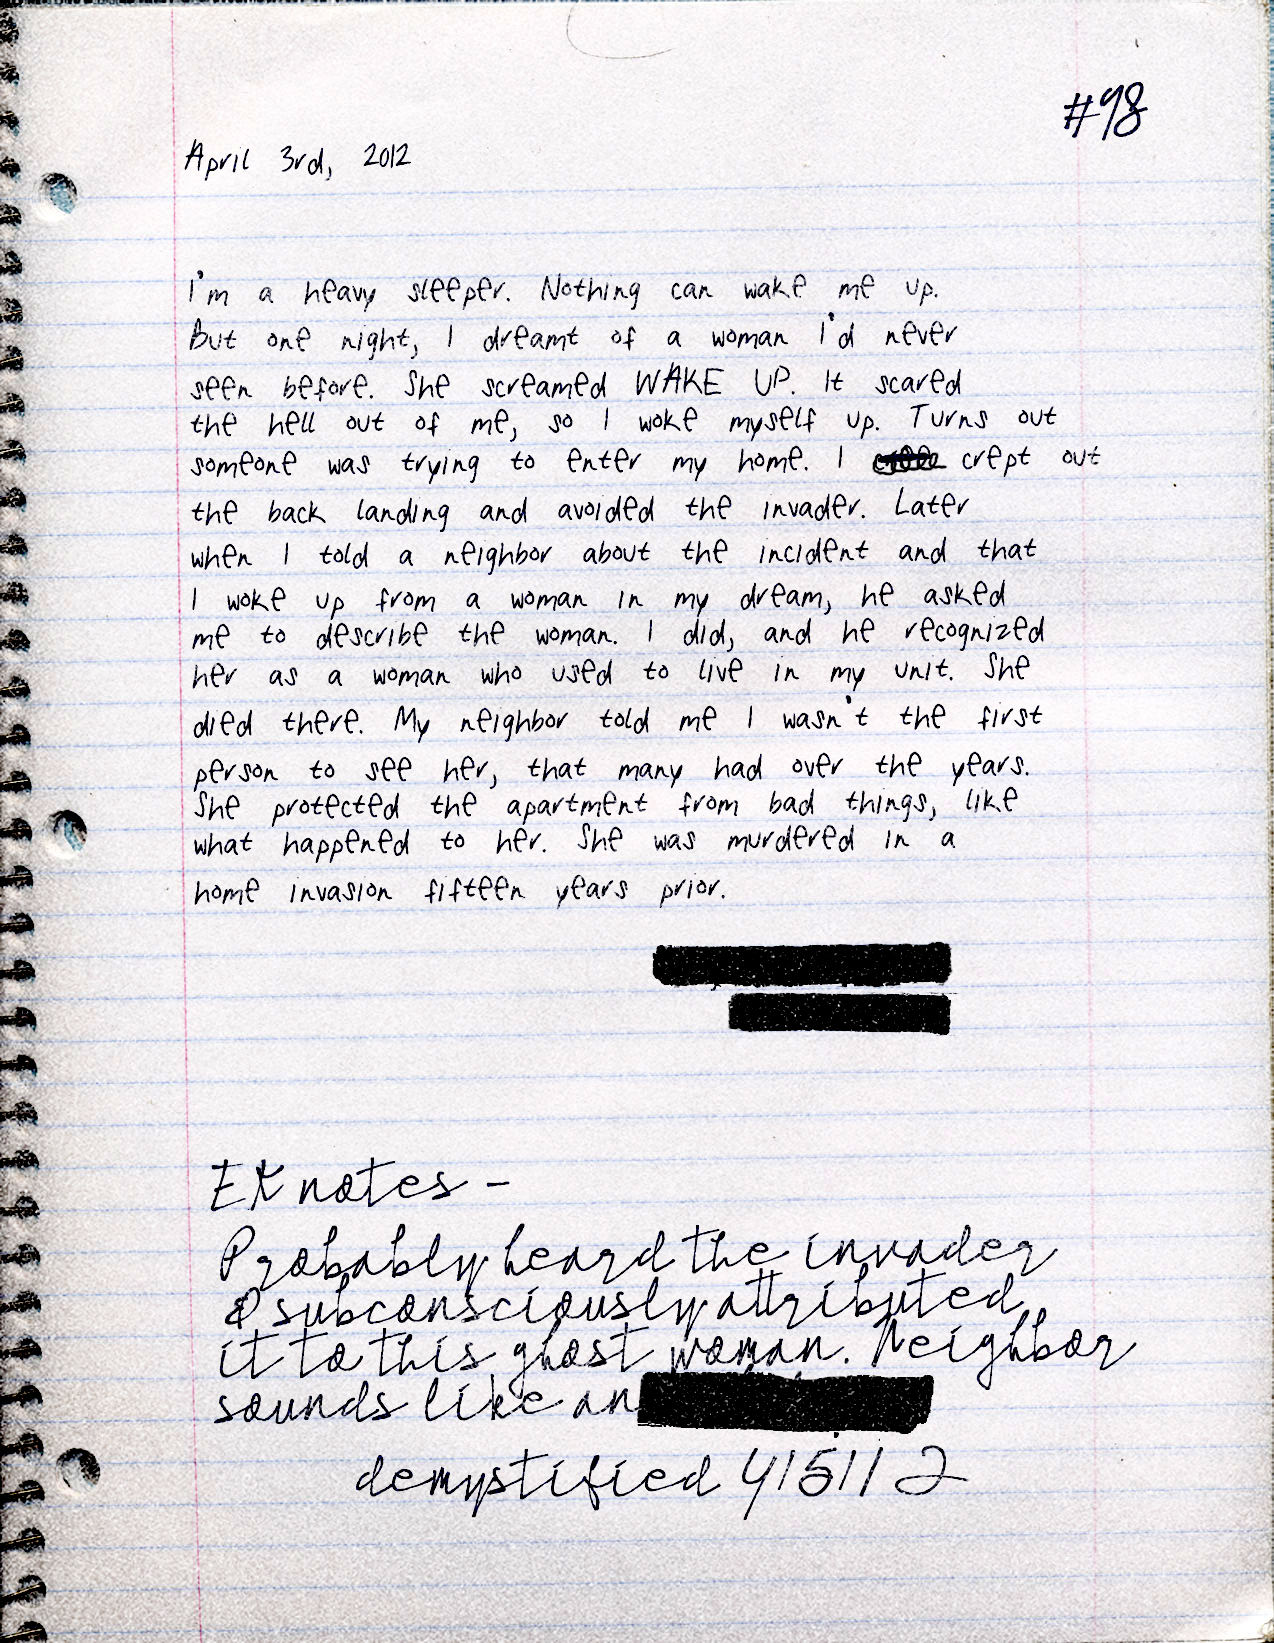 #98
April 3rd, 2012
I'm a heavy sleeper. Nothing can wake me up.
But one night, I dreamt of a woman I'd never
seen before. She screamed WAKE UP. It scared
the hell out of me, so I woke myself up. Turns out
someone was trying to enter my home. I crept out
the back landing and avoided the invader. Later
when I told a neighbor about the incident and that
I woke up from a woman in my dream, he asked
me to describe the woman. I did, and he recognized
her as a woman who used to live in my unit. She
died there. My neighbor told me I wasn't the first
person to see her, that many had over the years.
She protected the apartment from bad things, like
what happened to her. She was murdered in a
home invasion fifteen years prior.
EK notes -
Probably heard the invader
& subconsciously attributed
it to this ghost woman. Neighbor
sounds like an
demystified 4/5/12